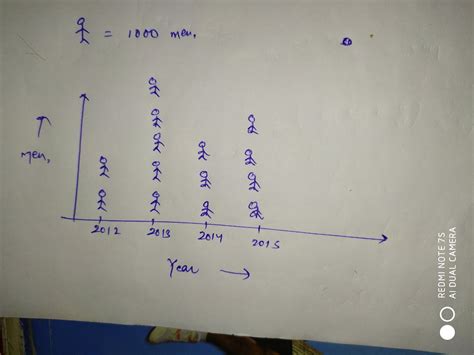 = 1000 men.
men.
2012 2013 2014 2015
Year
REDMI NOTE 7S
AI DUAL CAMERA